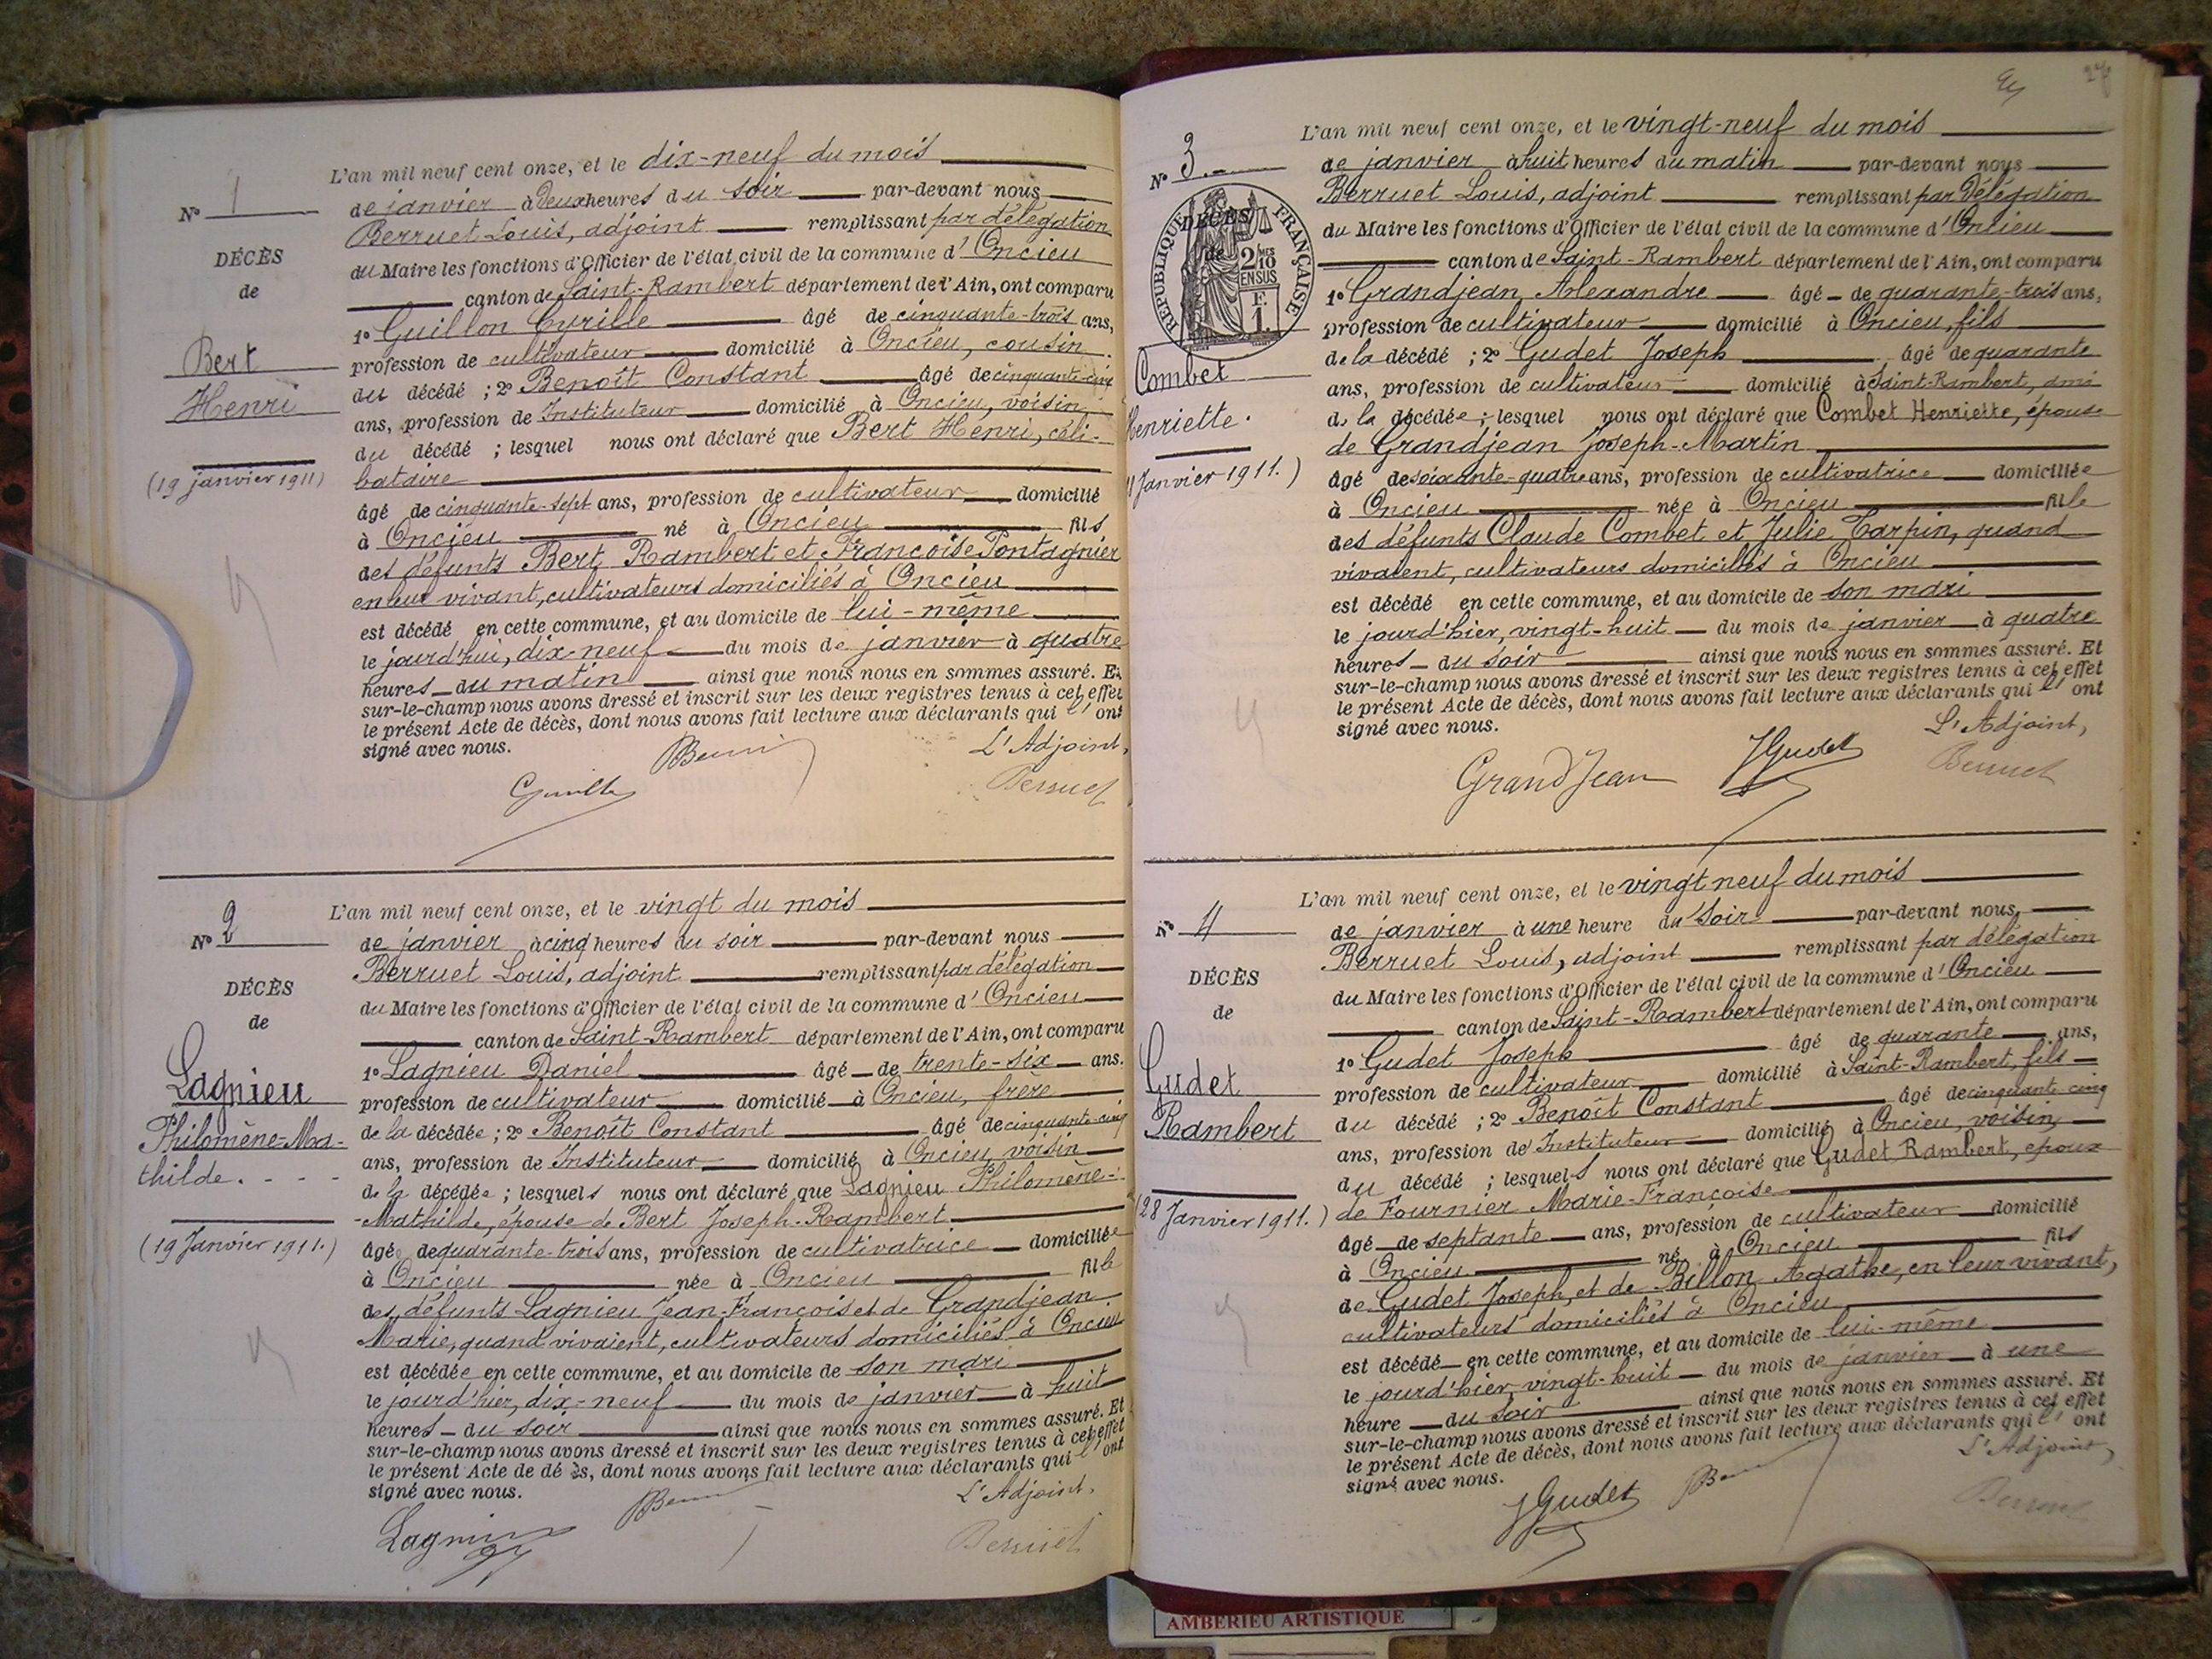 L'an mil neuf cent onze, et le dix-neuf du mois
de janvier à deux heures du soir par-devant nous
Berruet Louis, adjoint remplissant par délégation
du Maire les fonctions d'Officier de l'état civil de la commune d'Oncieu
canton de Saint-Rambert département de l'Ain, ont comparu
1º Guillon Cyrille âgé de cinquante-trois ans,
profession de cultivateur domicilié à Oncieu, cousin
du décédé ; 2º Benoît Constant âgé de cinquante-cinq
ans, profession de Instituteur domicilié à Oncieu, voisin
du décédé ; lesquel nous ont déclaré que Bert Henri, céli-
bataire
âgé de cinquante-sept ans, profession de cultivateur domicilié
à Oncieu né à Oncieu fils
des défunts Bert Rambert et Françoise Pontagnier
en leur vivant, cultivateurs domiciliés à Oncieu
est décédé en cette commune, et au domicile de lui-même
le jourd'hui, dix-neuf du mois de janvier à quatre
heures du matin ainsi que nous nous en sommes assuré. Et
sur-le-champ nous avons dressé et inscrit sur les deux registres tenus à cet effet
le présent Acte de décès, dont nous avons fait lecture aux déclarants qui l'ont
signé avec nous.
L'Adjoint,
Berruet
Nº 1
DÉCÈS
de
Bert
Henri
(19 janvier 1911)
L'an mil neuf cent onze, et le vingt du mois
de janvier à cinq heures du soir par-devant nous
Berruet Louis, adjoint remplissant par délégation
du Maire les fonctions d'Officier de l'état civil de la commune d'Oncieu
canton de Saint-Rambert département de l'Ain, ont comparu
1º Lagnieu Daniel âgé de trente-six ans.
profession de cultivateur domicilié à Oncieu, frère
de la décédée ; 2º Benoît Constant âgé de cinquante-cinq
ans, profession de Instituteur domicilié à Oncieu, voisin
de la décédée ; lesquels nous ont déclaré que Lagnieu Philomène-
-Mathilde, épouse de Bert Joseph-Rambert
âgée de quarante-trois ans, profession de cultivatrice domiciliée
à Oncieu née à Oncieu fille
des défunts Lagnieu Jean-François et de Grandjean
Marie, quand vivaient, cultivateurs domiciliés à Oncieu
est décédée en cette commune, et au domicile de son mari
le jourd'hier, dix-neuf du mois de janvier à huit
heures du soir ainsi que nous nous en sommes assuré. Et
sur-le-champ nous avons dressé et inscrit sur les deux registres tenus à cet effet
le présent Acte de dé ès, dont nous avons fait lecture aux déclarants qui l'ont
signé avec nous.
L'Adjoint,
Berruet
Nº 2
DÉCÈS
de
Lagnieu
Philomène-Ma-
thilde.
(19 Janvier 1911.)
L'an mil neuf cent onze, et le vingt-neuf du mois
de janvier à huit heures du matin par-devant nous
Berruet Louis, adjoint remplissant par délégation
du Maire les fonctions d'Officier de l'état civil de la commune d'Oncieu
canton de Saint-Rambert département de l'Ain, ont comparu
1º Grandjean Alexandre âgé de quarante-trois ans,
profession de cultivateur domicilié à Oncieu, fils
de la décédé ; 2º Gudet Joseph âgé de quarante
ans, profession de cultivateur domicilié à Saint-Rambert, ami
de la décédée ; lesquel nous ont déclaré que Combet Henriette, épouse
de Grandjean Joseph-Martin
âgé de soixante-quatre ans, profession de cultivatrice domiciliée
à Oncieu née à Oncieu fille
des défunts Claude Combet et Julie Tarpin, quand
vivaient, cultivateurs domiciliés à Oncieu
est décédé en cette commune, et au domicile de son mari
le jourd'hier, vingt-huit du mois de janvier à quatre
heures du soir ainsi que nous nous en sommes assuré. Et
sur-le-champ nous avons dressé et inscrit sur les deux registres tenus à cet effet
le présent Acte de décès, dont nous avons fait lecture aux déclarants qui l'ont
signé avec nous.
L'Adjoint,
GrandJean JGudet Berruet
Nº 3.
DÉCÈS
de
RÉPUBLIQUE FRANÇAISE
2/10
EN SUS
F.
1.
Combet
Henriette.
Janvier 1911.)
L'an mil neuf cent onze, et le vingt neuf du mois
de janvier à une heure du soir par-devant nous,
Berruet Louis, adjoint remplissant par délégation
du Maire les fonctions d'Officier de l'état civil de la commune d'Oncieu
canton de Saint-Rambert département de l'Ain, ont comparu
1º Gudet Joseph âgé de quarante ans,
profession de cultivateur domicilié à Saint-Rambert, fils
du décédé ; 2º Benoît Constant âgé de cinquante-cinq
ans, profession de Instituteur domicilié à Oncieu, voisin
du décédé ; lesquels nous ont déclaré que Gudet Rambert, époux
de Fournier Marie-Françoise
âgé de septante ans, profession de cultivateur domicilié
à Oncieu né à Oncieu fils
de Gudet Joseph, et de Billon Agathe, en leur vivant,
cultivateurs domiciliés à Oncieu
est décédé en cette commune, et au domicile de lui-même
le jourd'hier, vingt-huit du mois de janvier à une
heure du soir ainsi que nous nous en sommes assuré. Et
sur-le-champ nous avons dressé et inscrit sur les deux registres tenus à cet effet
le présent Acte de décès, dont nous avons fait lecture aux déclarants qui l'ont
signé avec nous.
L'Adjoint,
JGudet Berruet
Nº 4
DÉCÈS
de
Gudet
Rambert
(28 Janvier 1911.)
AMBERIEU ARTISTIQUE